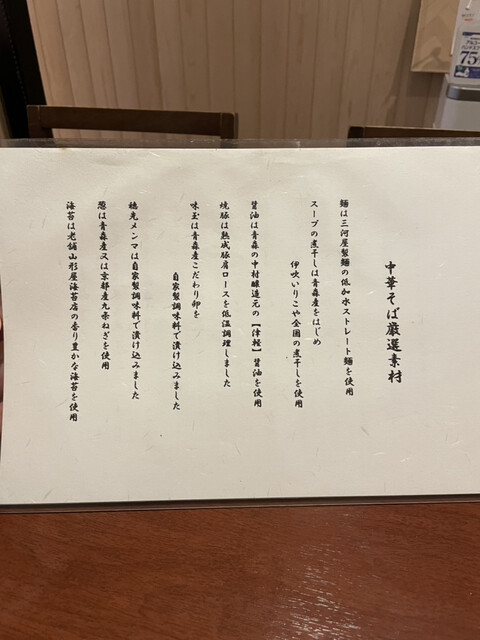 中華そば厳選素材
麺は三河屋製麺の低加水ストレート麺を使用
スープの煮干しは青森産をはじめ
伊吹いりこや全国の煮干しを使用
醤油は青森の中村醸造元の【津軽】醤油を使用
焼豚は熟成豚肩ロースを低温調理しました
味玉は青森産こだわり卵を
自家製調味料で漬け込みました
穂先メンマは自家製調味料で漬け込みました
葱は青森産又は京都産九条ねぎを使用
海苔は老舗山形屋海苔店の香り豊かな海苔を使用
アルコール
75